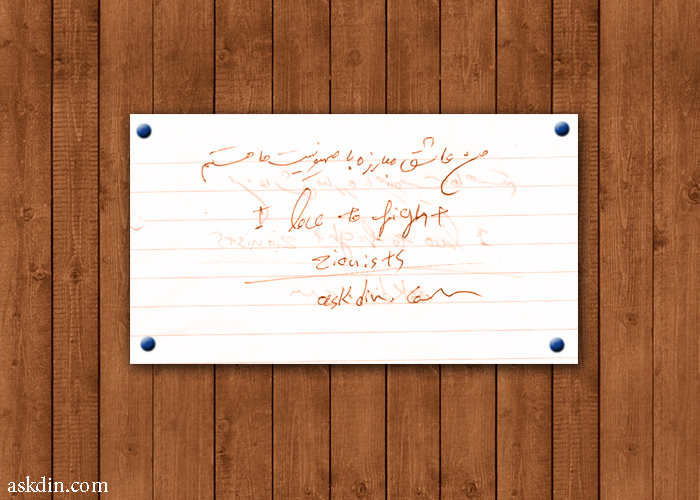 من عاشق مبارزه با صهیونیست ها هستم
I love to fight
zionists
askdin.com
askdin.com